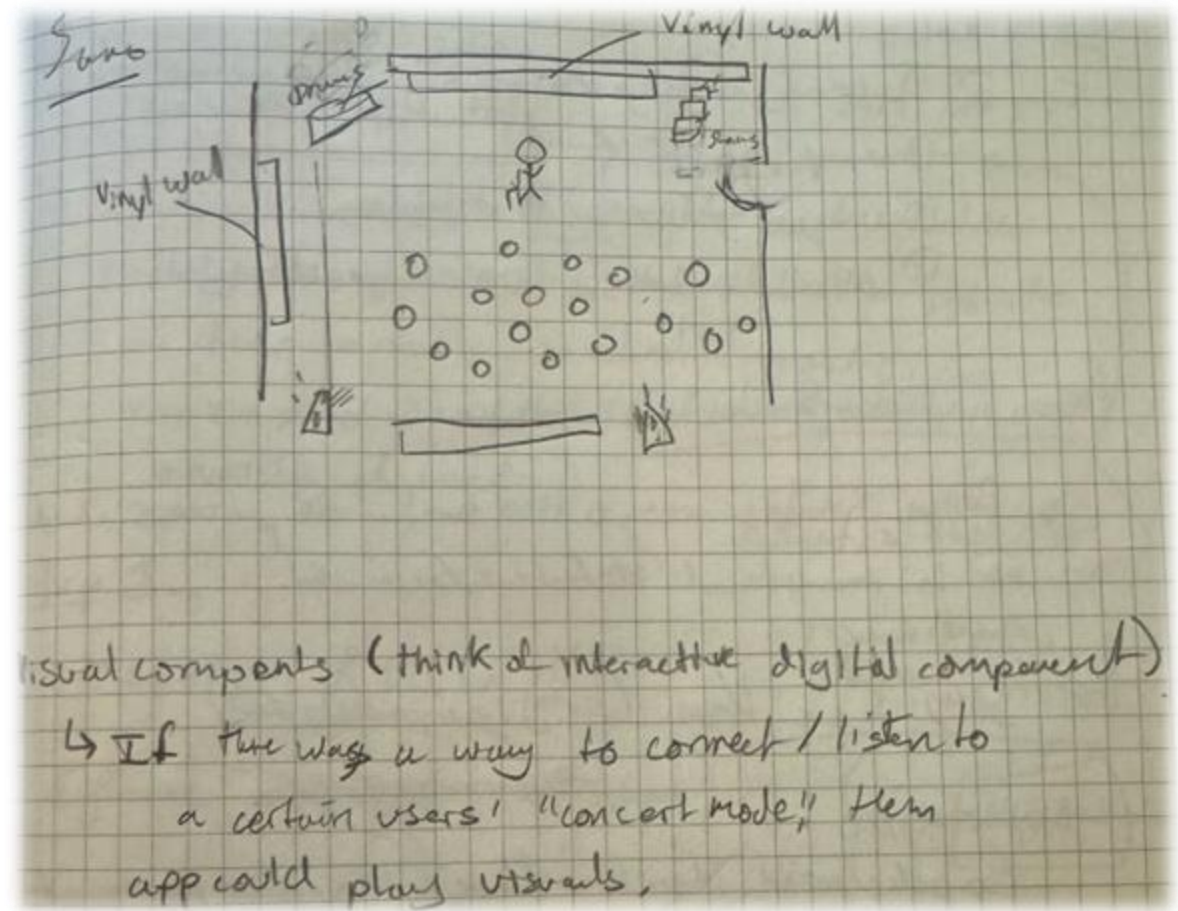 Vinyl wall
Vinyl wall
visual compents (think of interactive digital component)
↳ If there was a way to connect / listen to
a certain users' "concert mode," then
app could play visuals.